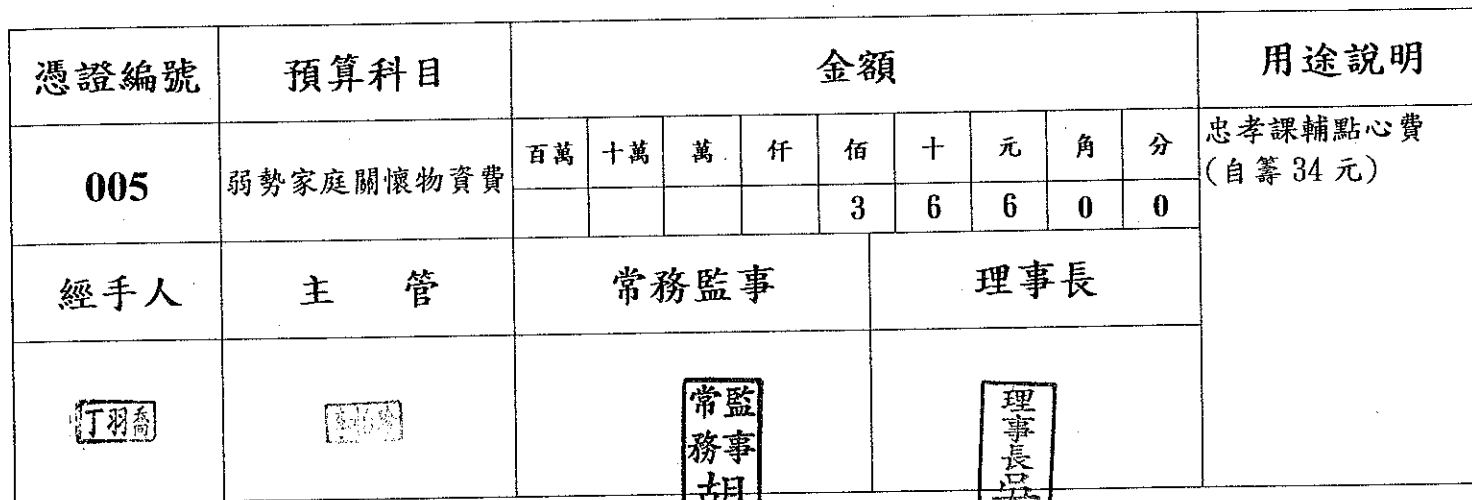 憑證編號 預算科目 金額 用途說明
005 弱勢家庭關懷物資費 百萬 十萬 萬 仟 佰 十 元 角 分 忠孝課輔點心費
3 6 6 0 0 (自籌 34 元)
經手人 主 管 常務監事 理事長
丁羽喬 常務監事胡 理事長吳